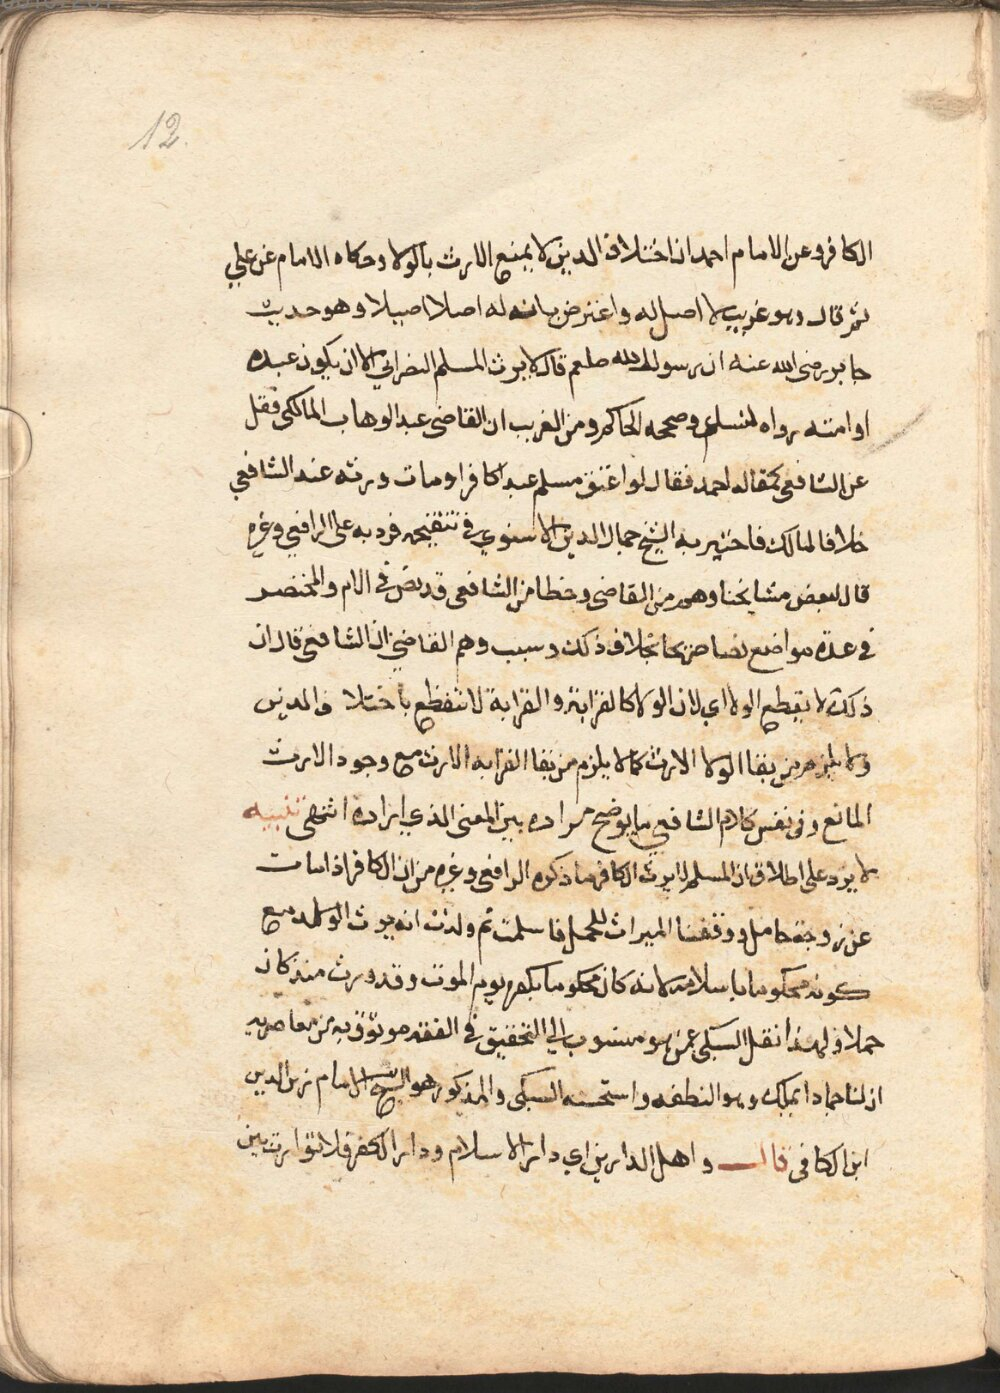 12
الكافر وعن الامام احمد ان اختلاف الدين لا يمنع الارث بالولا وحكاه الامام عن علي
ثم قال وهو غريب لا اصل له واعترض بان له اصلا اصيلا وهو حديث
جابر رضي الله عنه ان رسول الله صلعم قال لا يرث المسلم النصراني الا ان يكون عبده
او امته رواه النسائي وصححه الحاكم ومن الغريب ان القاضي عبد الوهاب المالكي نقل
عن الشافعي كمقالة احمد فقال لو اعتق مسلم عبدا كافرا ومات ورثه عند الشافعي
خلافا لمالك فاغتر به الشيخ جمال الدين الاسنوي في تنقيحه فرد به على الرافعي وغيره
قال بعض مشايخنا وهو من القاضي وخطا من الشافعي قد نص في الام والمختصر
في عدة مواضع نصا صريحا بخلاف ذلك وسبب وهم القاضي ان الشافعي قال ان
ذلك لا يقطع الولا اي لان الولا كالقرابة والقرابة لا تنقطع باختلاف الدين
ولا يلزم من بقا الولا الارث كما لا يلزم من بقا القرابه الارث مع وجود الارث
المانع وفي نفس كلام الشافعي ما يوضح مراده بين المعنى الذي اراده انتهى تنبيه
لا يرد على اطلاق ان المسلم لا يرث الكافر ما ذكره الرافعي وغيره من ان الكافر اذا مات
عن زوجة حامل ووقفنا الميراث للحمل فاسلمت ثم ولدت انه يرث الولد مع
كونه محكوما باسلامه لانه كان محكوما بكفره يوم الموت وقد ورث منذ كان
حملا ولهذا نقل السبكي عن هو منسوب الي التحقيق في الفقه موثوق به من معاصريه
ان لنا جمادا يملك وهو النطفه واستحسنه السبكي والمذكور هو الشيخ الامام زين الدين
ابن الكتاني قال واهل الدارين اي دار الاسلام ودار الكفر فلا توارث بين